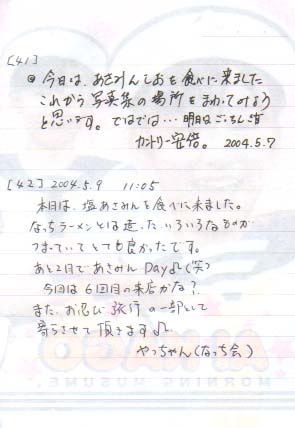 [41]
◎ 今日は、あさみんしおを食べに来ました
これから写真集の場所をまわってみよう
と思います。ではでは…明日は
カントリー安倍。 2004.5.7
[42] 2004.5.9 11:05
本日は、塩あさみを食べに来ました。
なっちラーメンとは違った、いろいろなものが
つまっていてとても良かったです。
あと2日であさみん Day♫(笑)
今回は6回目の来店かな?
また、お忍び旅行の一部として
寄らさせて頂きます♫。
やっちゃん(なっち会)
AI KAGO
MORNING MUSUME.